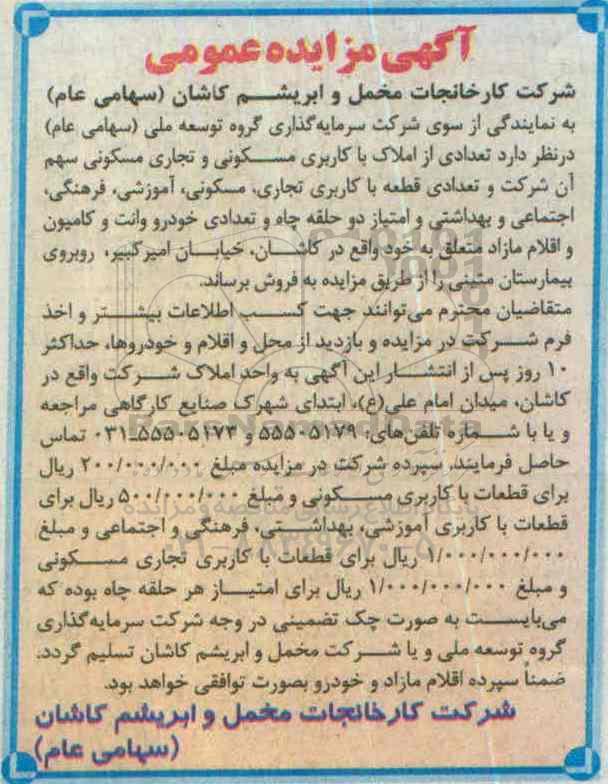 آگهی مزایده عمومی
شرکت کارخانجات مخمل و ابریشم کاشان (سهامی عام)
به نمایندگی از سوی شرکت سرمایه‌گذاری گروه توسعه ملی (سهامی عام)
درنظر دارد تعدادی از املاک با کاربری مسکونی و تجاری مسکونی سهم
آن شرکت و تعدادی قطعه با کاربری تجاری، مسکونی، آموزشی، فرهنگی،
اجتماعی و بهداشتی و امتیاز دو حلقه چاه و تعدادی خودرو وانت و کامیون
و اقلام مازاد متعلق به خود واقع در کاشان، خیابان امیرکبیر، روبروی
بیمارستان متینی را از طریق مزایده به فروش برساند.
متقاضیان محترم می‌توانند جهت کسب اطلاعات بیشتر و اخذ
فرم شرکت در مزایده و بازدید از محل و اقلام و خودروها، حداکثر
۱۰ روز پس از انتشار این آگهی به واحد املاک شرکت واقع در
کاشان، میدان امام علی(ع)، ابتدای شهرک صنایع کارگاهی مراجعه
و یا با شماره تلفن‌های: ۵۵۵۰۵۱۷۹ و ۵۵۵۰۵۱۷۳-۰۳۱ تماس
حاصل فرمایند. سپرده شرکت در مزایده مبلغ ۲۰۰/۰۰۰/۰۰۰ ریال
برای قطعات با کاربری مسکونی و مبلغ ۵۰۰/۰۰۰/۰۰۰ ریال برای
قطعات با کاربری آموزشی، بهداشتی، فرهنگی و اجتماعی و مبلغ
۱/۰۰۰/۰۰۰/۰۰۰ ریال برای قطعات با کاربری تجاری مسکونی
و مبلغ ۱/۰۰۰/۰۰۰/۰۰۰ ریال برای امتیاز هر حلقه چاه بوده که
می‌بایست به صورت چک تضمینی در وجه شرکت سرمایه‌گذاری
گروه توسعه ملی و یا شرکت مخمل و ابریشم کاشان تسلیم گردد.
ضمناً سپرده اقلام مازاد و خودرو بصورت توافقی خواهد بود.
شرکت کارخانجات مخمل و ابریشم کاشان
(سهامی عام)